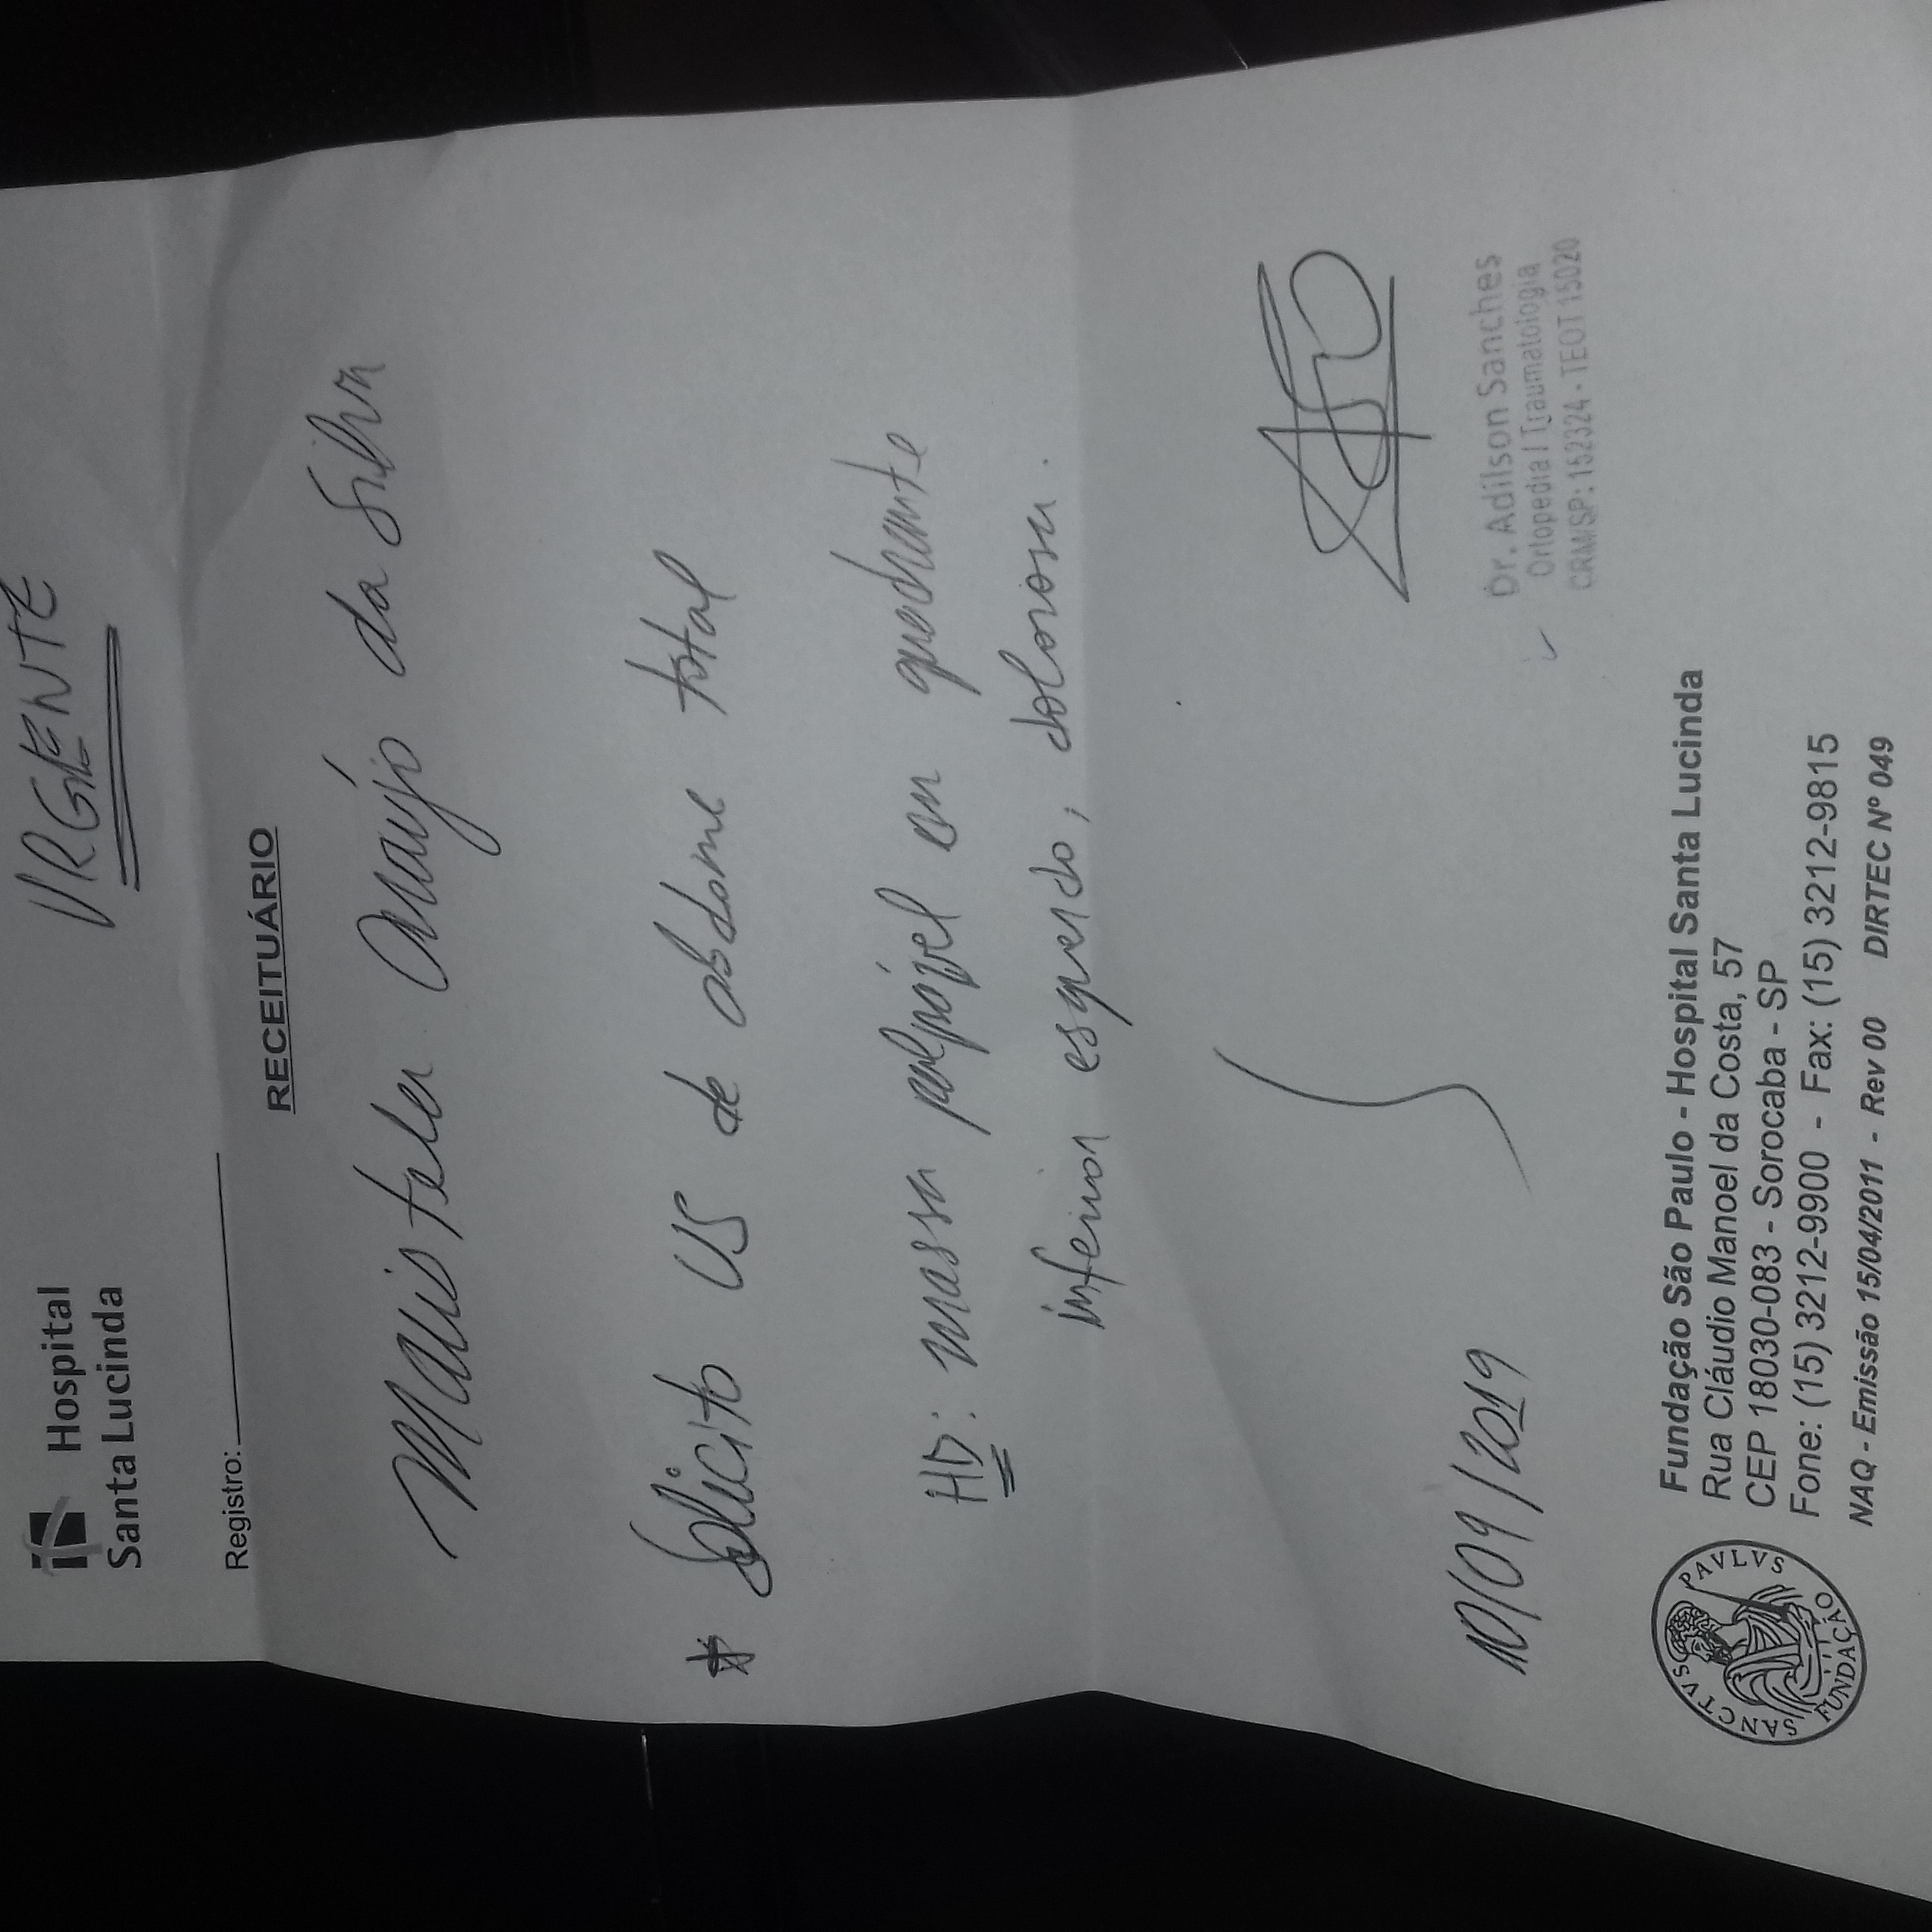 Hospital
Santa Lucinda
URGENTE
Registro:
RECEITUÁRIO
Maristela Araújo da Silva
* Solicito US de abdome total
HD: massa palpável em quadrante
inferior esquerdo, dolorosa.
10/09/2019
Dr. Adilson Sanches
Ortopedia / Traumatologia
CRM/SP: 152324 - TEOT 15020
SANCTVS PAVLVS
FUNDAÇÃO
Fundação São Paulo - Hospital Santa Lucinda
Rua Cláudio Manoel da Costa, 57
CEP 18030-083 - Sorocaba - SP
Fone: (15) 3212-9900 - Fax: (15) 3212-9815
NAQ - Emissão 15/04/2011 - Rev 00 DIRTEC Nº 049